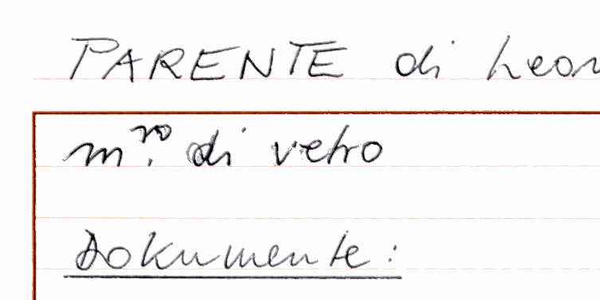 PARENTE di Leon
m.ro di vetro
Dokumente: